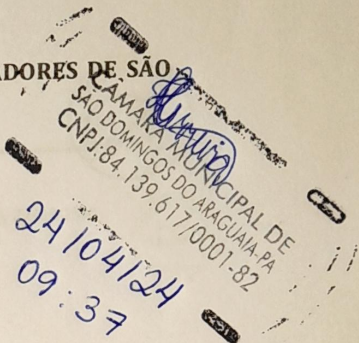 ADORES DE SÃO
CÂMARA MUNICIPAL DE
SÃO DOMINGOS DO ARAGUAIA-PA
CNPJ:84.139.617/0001-82
24/04/24
09:37